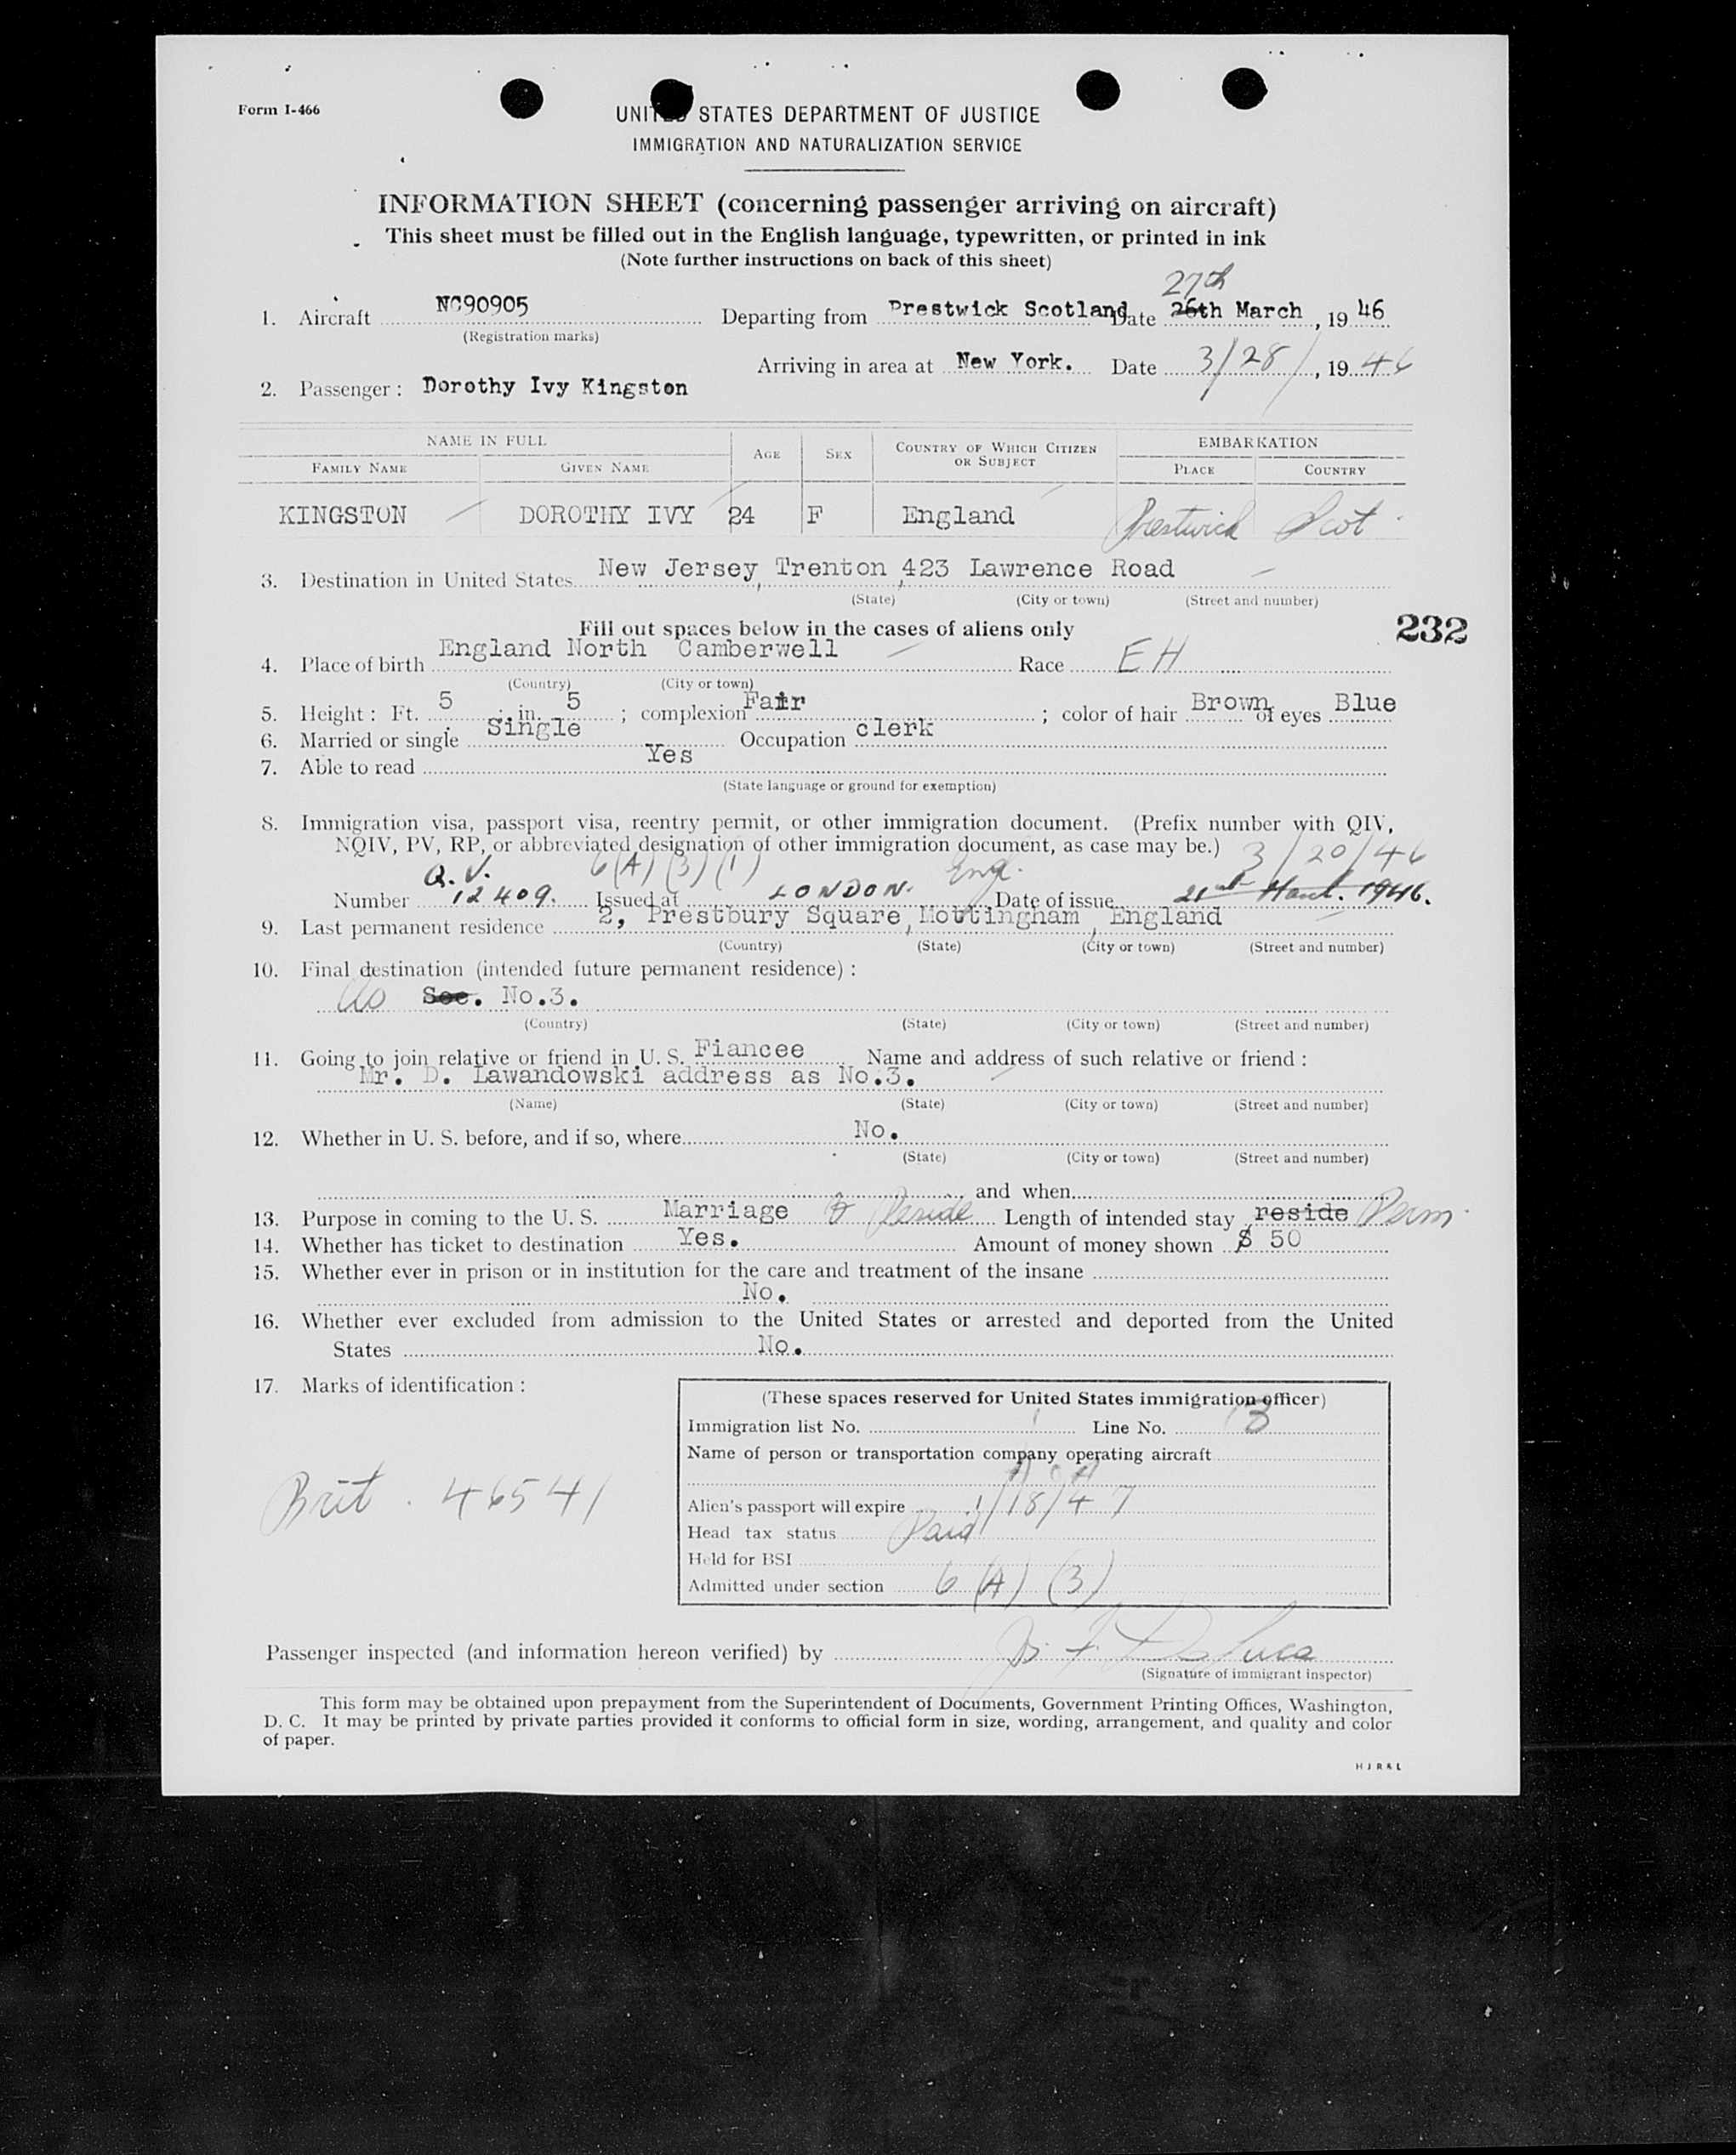 Form I-466
UNITED STATES DEPARTMENT OF JUSTICE
IMMIGRATION AND NATURALIZATION SERVICE
INFORMATION SHEET (concerning passenger arriving on aircraft)
This sheet must be filled out in the English language, typewritten, or printed in ink
(Note further instructions on back of this sheet)
27th
1. Aircraft NC90905 Departing from Prestwick Scotland Date 26th March, 19 46
(Registration marks)
Arriving in area at New York. Date 3/28/, 19 46
2. Passenger: Dorothy Ivy Kingston
NAME IN FULL AGE SEX COUNTRY OF WHICH CITIZEN OR SUBJECT EMBARKATION
FAMILY NAME GIVEN NAME PLACE COUNTRY
KINGSTON DOROTHY IVY 24 F England Prestwick Scot
3. Destination in United States New Jersey, Trenton, 423 Lawrence Road
(State) (City or town) (Street and number)
232
Fill out spaces below in the cases of aliens only
4. Place of birth England North Camberwell Race EH
(Country) (City or town)
5. Height: Ft. 5; in. 5; complexion Fair; color of hair Brown of eyes Blue
6. Married or single Single Occupation clerk
7. Able to read Yes
(State language or ground for exemption)
8. Immigration visa, passport visa, reentry permit, or other immigration document. (Prefix number with QIV,
NQIV, PV, RP, or abbreviated designation of other immigration document, as case may be.)
Q.V. 6(A)(3)(1) Engl. 3/20/46
Number 12409. Issued at LONDON. Date of issue 21st March. 1946.
9. Last permanent residence 2, Prestbury Square, Mottingham, England
(Country) (State) (City or town) (Street and number)
10. Final destination (intended future permanent residence):
As See. No.3.
(Country) (State) (City or town) (Street and number)
11. Going to join relative or friend in U. S. Fiancee Name and address of such relative or friend:
Mr. D. Lawandowski address as No.3.
(Name) (State) (City or town) (Street and number)
12. Whether in U. S. before, and if so, where No.
(State) (City or town) (Street and number)
and when
13. Purpose in coming to the U. S. Marriage & Reside Length of intended stay reside Perm.
14. Whether has ticket to destination Yes. Amount of money shown $ 50
15. Whether ever in prison or in institution for the care and treatment of the insane
No.
16. Whether ever excluded from admission to the United States or arrested and deported from the United
States No.
17. Marks of identification:
Brit. 46541
(These spaces reserved for United States immigration officer)
Immigration list No. 1 Line No. 3
Name of person or transportation company operating aircraft
A O A
Alien's passport will expire 1/18/47
Head tax status Paid
Held for BSI
Admitted under section 6 (A) (3)
Passenger inspected (and information hereon verified) by
(Signature of immigrant inspector)
This form may be obtained upon prepayment from the Superintendent of Documents, Government Printing Offices, Washington,
D. C. It may be printed by private parties provided it conforms to official form in size, wording, arrangement, and quality and color
of paper.
H J R & L